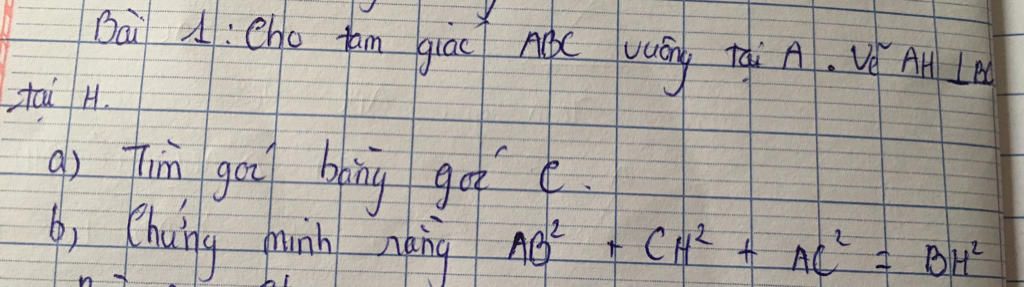 Bài 1: Cho tam giác ABC vuông tại A. Vẽ AH ⊥ BC
tại H.
a) Tìm góc bằng góc C.
b, Chứng minh rằng AB² + CH² + AC² = BH²